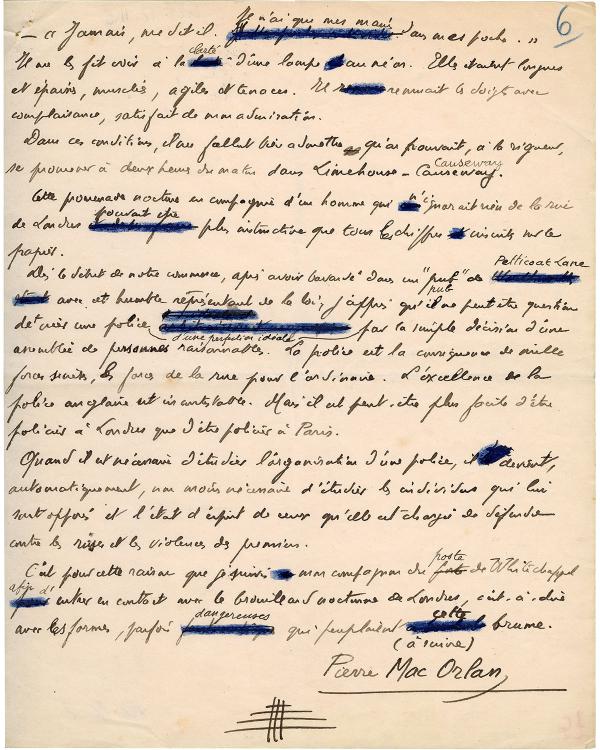 6
— « Jamais, me dit-il. Je n'ai que mes mains dans mes poches. »
Il me les fit voir à la clarté d'une lampe au néon. Elles étaient longues
et épaisses, musclées, agiles et tenaces. Il remuait les doigts avec
complaisance, satisfait de mon admiration.
Dans ces conditions, il me fallut bien admettre qu'on pouvait, à la rigueur,
se promener à deux heures du matin dans Limehouse - Causeway. Causeway
Cette promenade nocturne en compagnie d'un homme qui n'ignorait rien de la rue
de Londres pouvait être plus instructive que tous les chiffres inscrits sur le
papier.
Dès le début de notre commerce, après avoir bavardé dans un "pub" pub de Petticoat Lane
avec cet humble représentant de la loi, j'appris qu'il ne peut être question
de créer une police d'une perfection idéale par la simple décision d'une
assemblée de personnes raisonnables. La police est la conséquence de mille
forces secrètes, les forces de la rue pour l'ordinaire. L'excellence de la
police anglaise est incontestable. Mais il est peut-être plus facile d'être
policier à Londres que d'être policier à Paris.
Quand il est nécessaire d'étudier l'organisation d'une police, il devient,
automatiquement, non moins nécessaire d'étudier les individus qui lui
sont opposés et l'état d'esprit de ceux qu'elle est chargée de défendre
contre les ruses et les violences des premiers.
C'est pour cette raison que je suivis mon compagnon du poste de Whitechappel
afin d'entrer en contact avec le brouillard nocturne de Londres, c'est-à-dire
avec les formes, parfois dangereuses qui peuplaient cette brume.
(à suivre)
Pierre Mac Orlan